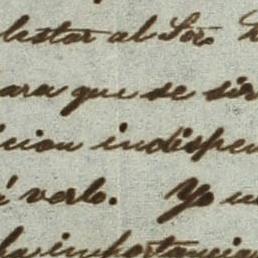 bastar al Sor.
ara que se sir
icion indispen
á verlo. Yo
la importancia